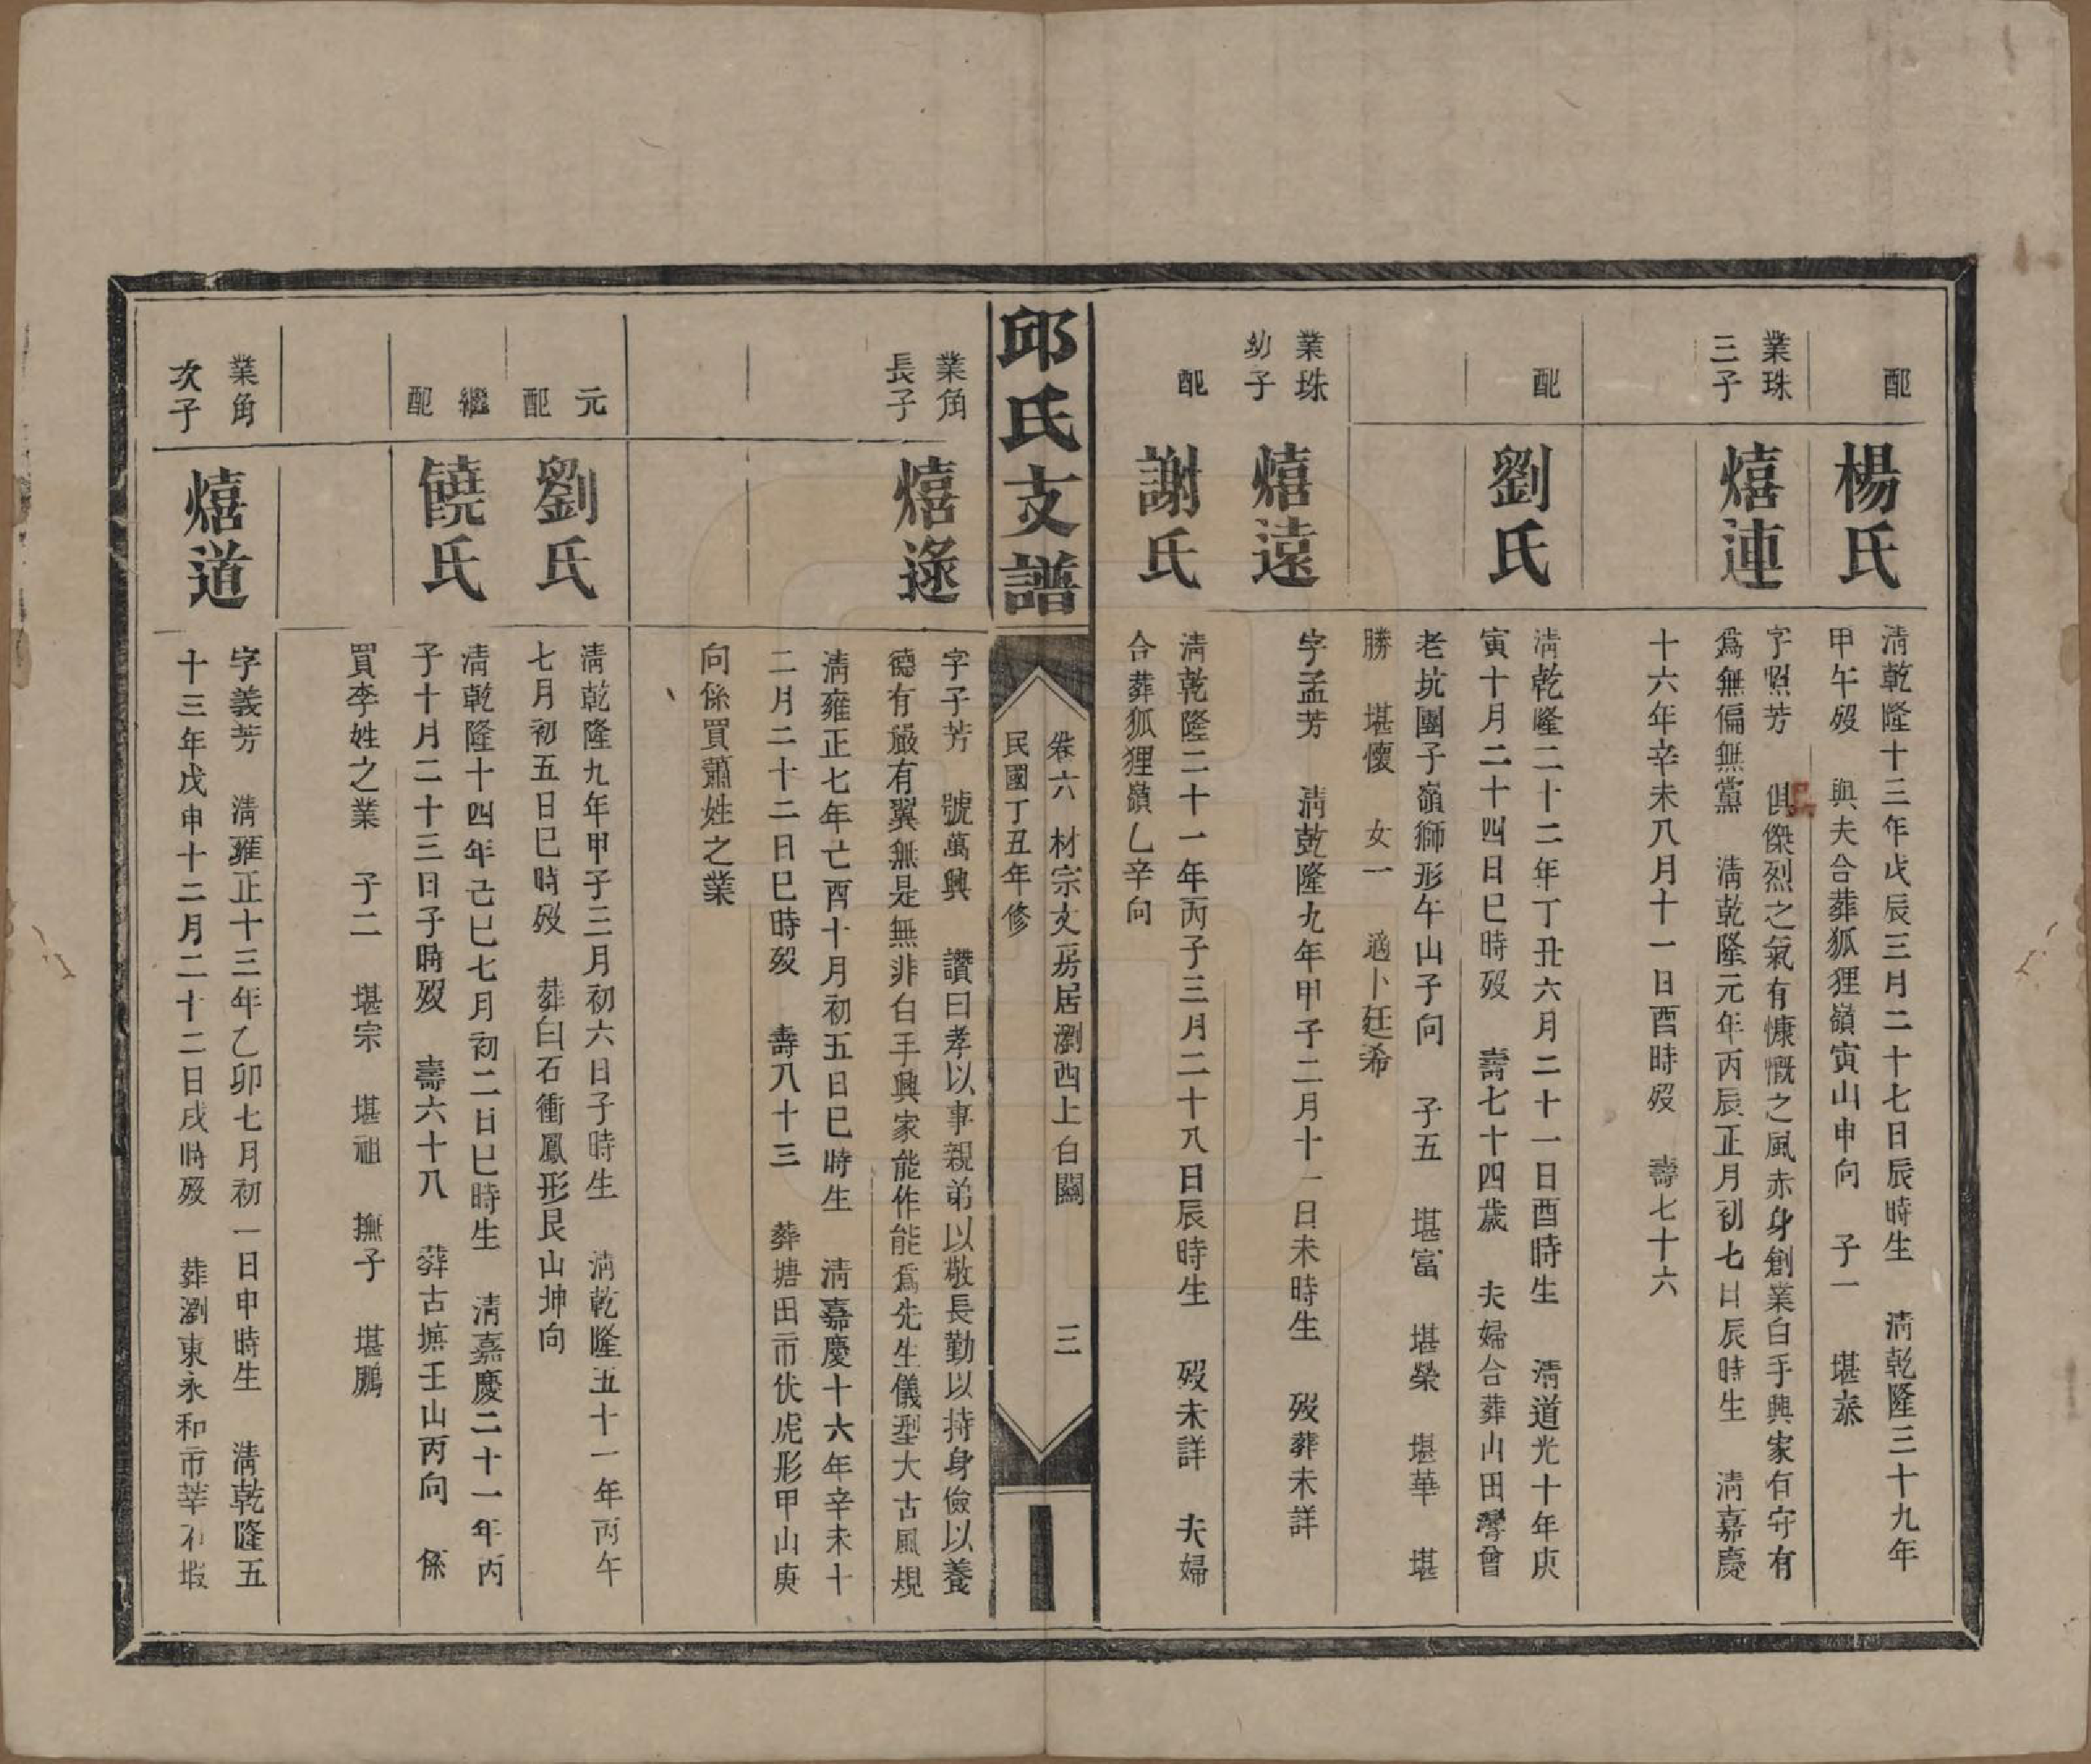 配
楊氏
淸乾隆十三年戊辰三月二十七日辰時生　淸乾隆三十九年
甲午歿　與夫合葬狐狸嶺寅山申向　子一　堪泰
業珠
三子
熺連
字照芳　俱傑烈之氣有慷慨之風赤身創業白手興家有守有
爲無偏無黨　淸乾隆元年丙辰正月初七日辰時生　淸嘉慶
十六年辛未八月十一日酉時歿　壽七十六
配
劉氏
淸乾隆二十二年丁丑六月二十一日酉時生　淸道光十年庚
寅十月二十四日巳時歿　壽七十四歲　夫婦合葬山田灣曾
老坑團子嶺獅形午山子向　子五　堪富　堪榮　堪華　堪
勝　堪懷　女一　適卜廷希
業珠
幼子
熺遠
字孟芳　淸乾隆九年甲子二月十一日未時生　歿葬未詳
配
謝氏
淸乾隆二十一年丙子三月二十八日辰時生　歿未詳　夫婦
合葬狐狸嶺乙辛向
邱氏支譜
卷六　材宗文房居瀏西上白關　三
民國丁丑年修
業角
長子
熺逐
字子芳　號萬興　讚曰孝以事親弟以敬長勤以持身儉以養
德有嚴有翼無是無非白手興家能作能爲先生儀型大古風規
淸雍正七年己酉十月初五日巳時生　淸嘉慶十六年辛未十
二月二十二日巳時歿　壽八十三　葬塘田市伏虎形甲山庚
向係買蕭姓之業
元
配
劉氏
淸乾隆九年甲子三月初六日子時生　淸乾隆五十一年丙午
七月初五日巳時歿　葬白石衝鳳形艮山坤向
繼
配
饒氏
淸乾隆十四年己巳七月初二日巳時生　淸嘉慶二十一年丙
子十月二十三日子時歿　壽六十八　葬古塘壬山丙向　係
買李姓之業　子二　堪宗　堪祖　撫子　堪鵬
業角
次子
熺道
字義芳　淸雍正十三年乙卯七月初一日申時生　淸乾隆五
十三年戊申十二月二十二日戌時歿　葬瀏東永和市莘石塅